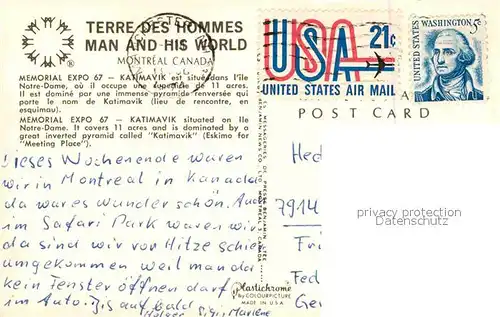 TERRE DES HOMMES
MAN AND HIS WORLD
MONTRÉAL CANADA
MEMORIAL EXPO 67 - KATIMAVIK est situé dans l'île
Notre-Dame, où il occupe une superficie de 11 acres.
Il est dominé par une immense pyramide renversée qui
porte le nom de Katimavik (lieu de rencontre, en
esquimau).
MEMORIAL EXPO 67 - KATIMAVIK situated on Ile
Notre-Dame. It covers 11 acres and is dominated by a
great inverted pyramid called "Katimavik" (Eskimo for
"Meeting Place").
USA 21c
UNITED STATES AIR MAIL
UNITED STATES
WASHINGTON 5c
POST CARD
Dieses Wochenende waren
wir in Montreal in Kanada
da war es wunder schön. Auch
im Safari Park waren wir
da sind wir vor Hitze schier
umgekommen weil man da
kein Fenster öffnen darf
im Auto. Bis auf bald
Holger Sigi Marlene
Plastichrome
by COLOURPICTURE
MADE IN U.S.A.
7914
Ge
privacy protection
Datenschutz